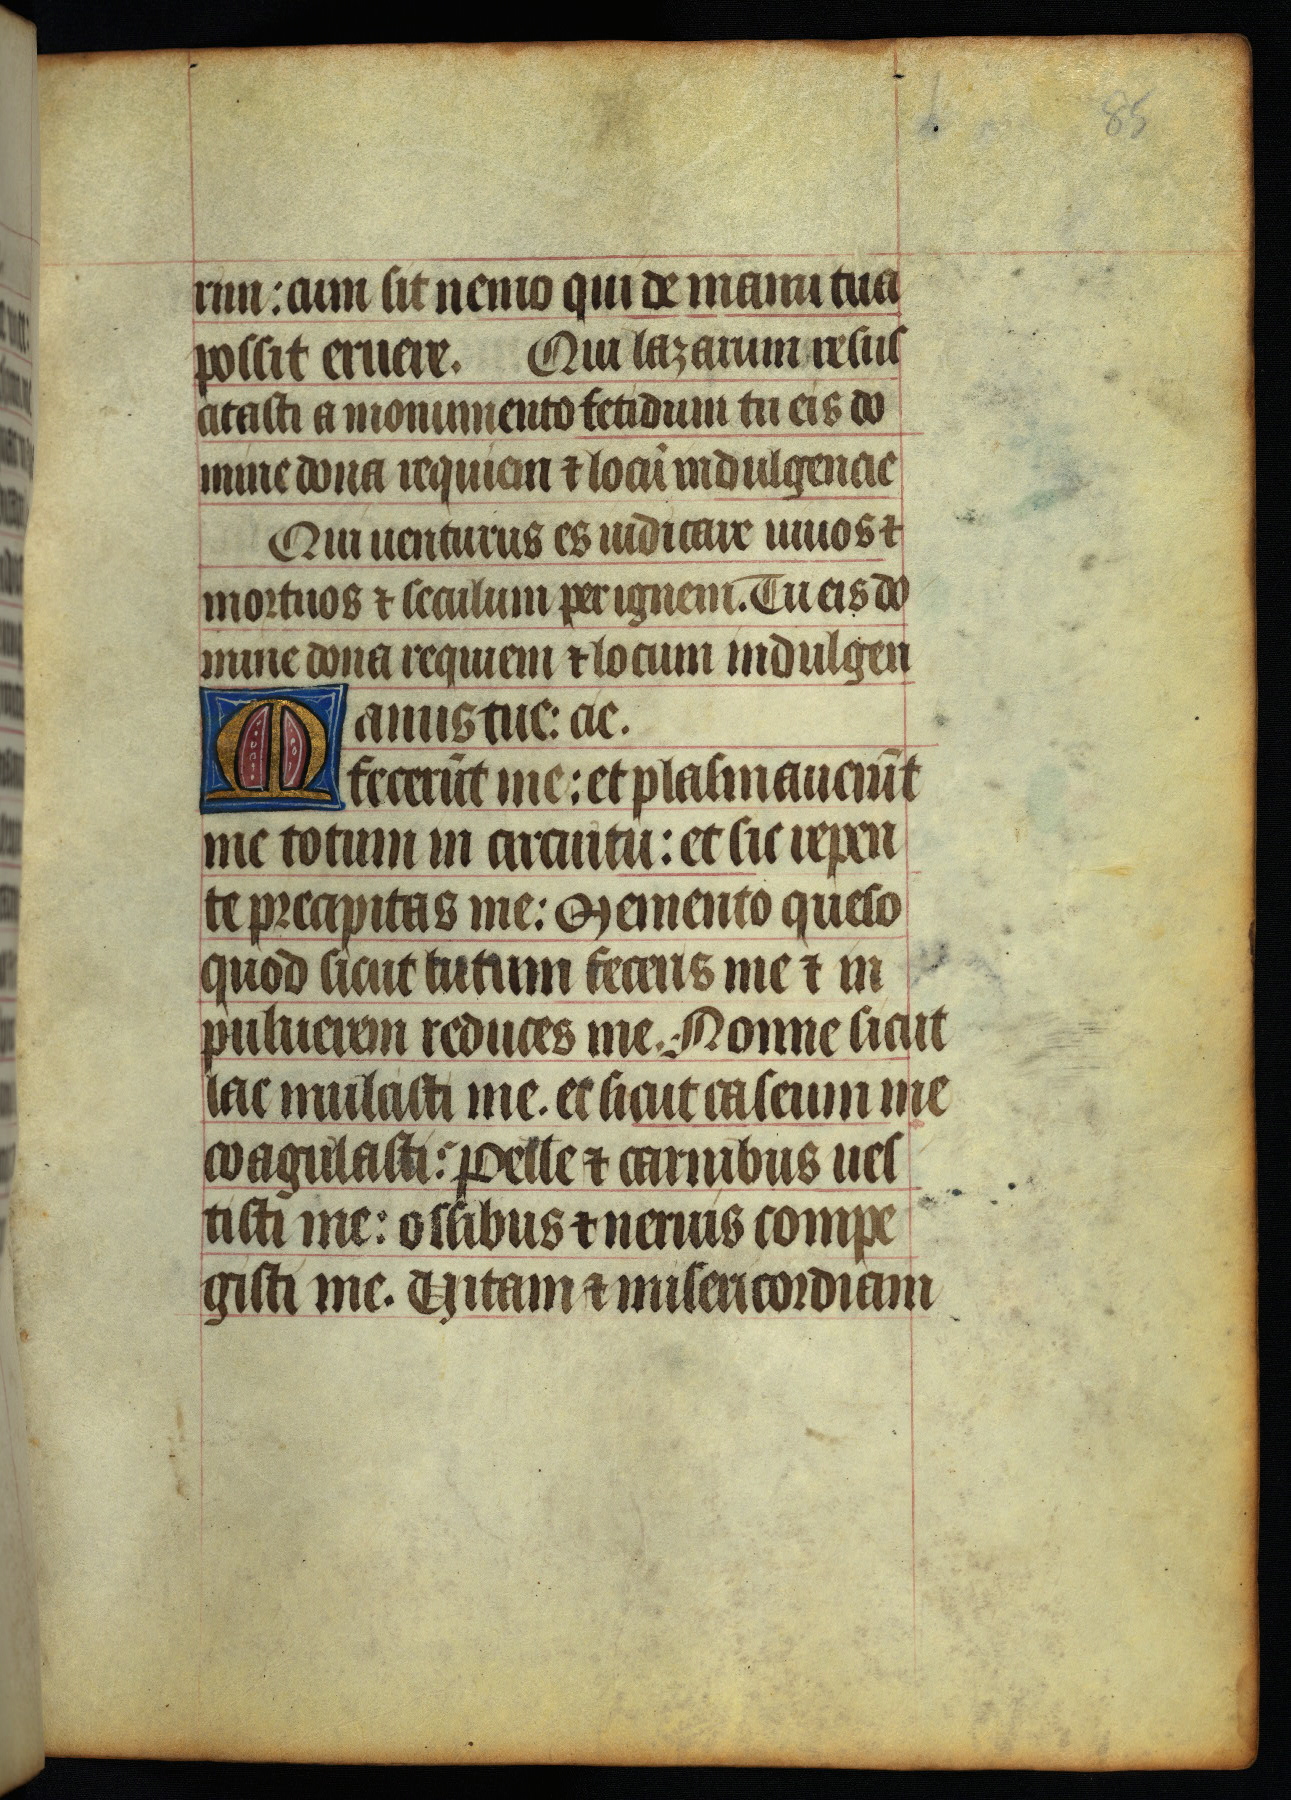 85
rim: cum sit nemo qui de manu tua
possit eruere. Qui lazarum resus
citasti a monumento fetidum tu eis do
mine dona requiem ⁊ locū indulgencie
Qui uenturus es iudicare uiuos ⁊
mortuos ⁊ seculum per ignem. Tu eis do
mine dona requiem ⁊ locum indulgen
Manus tue: cie.
fecerūt me: et plasmauerūt
me totum in circuitu: et sic repen
te precipitas me: Memento queso
quod sicut lutum feceris me ⁊ in
puluerem reduces me. Nonne sicut
lac mulcisti me. et sicut caseum me
coagulasti: Pelle ⁊ carnibus ues
tisti me: ossibus ⁊ neruis compe
gisti me. Uitam ⁊ misericordiam